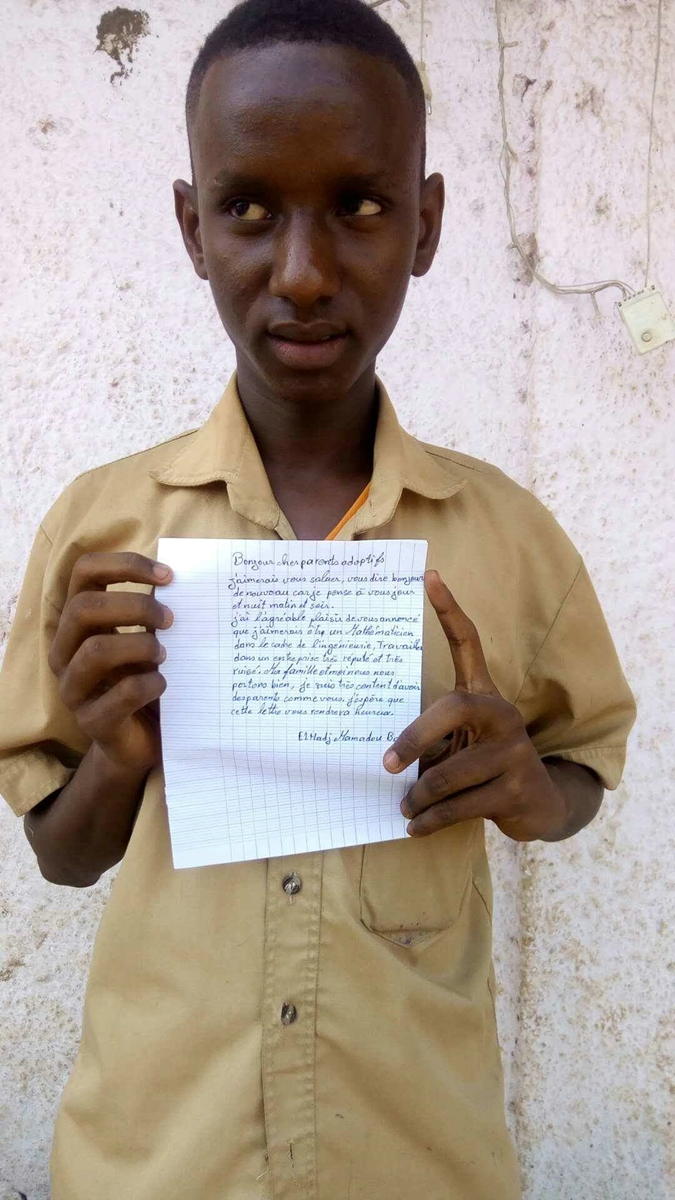 Bonjour chers parents adoptifs
j'aimerais vous saluer, vous dire bonjour
de nouveau car je pense à vous jour
et nuit matin et soir.
j'ai l'agréable plaisir de vous annoncé
que j'aimerais être un Mathématicien
dans le cadre de l'ingénieurie, Travailler
dans un entreprise très réputé et très
rusé. Ma famille et moi nous nous
portons bien, je suis très content d'avoir
des parents comme vous. j'espère que
cette lettre vous rendrera heureux.
El Hadj Mamadou